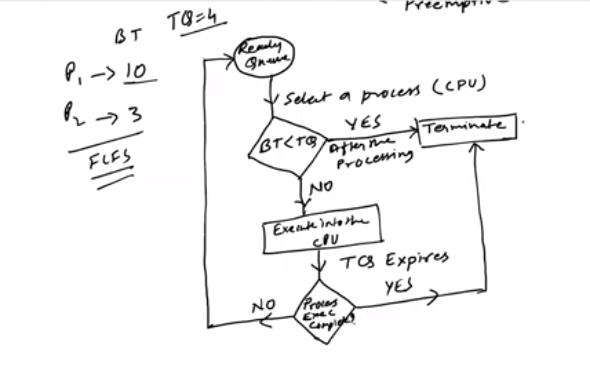 Preemptiv
TQ=4
BT
P1 → 10
P2 → 3
FCFS
Ready
Queue
Select a process (CPU)
BT<TQ
YES
After the
Processing
Terminate
NO
Execute into the
CPU
TQ Expires
YES
NO
Process
Exec
Complete?